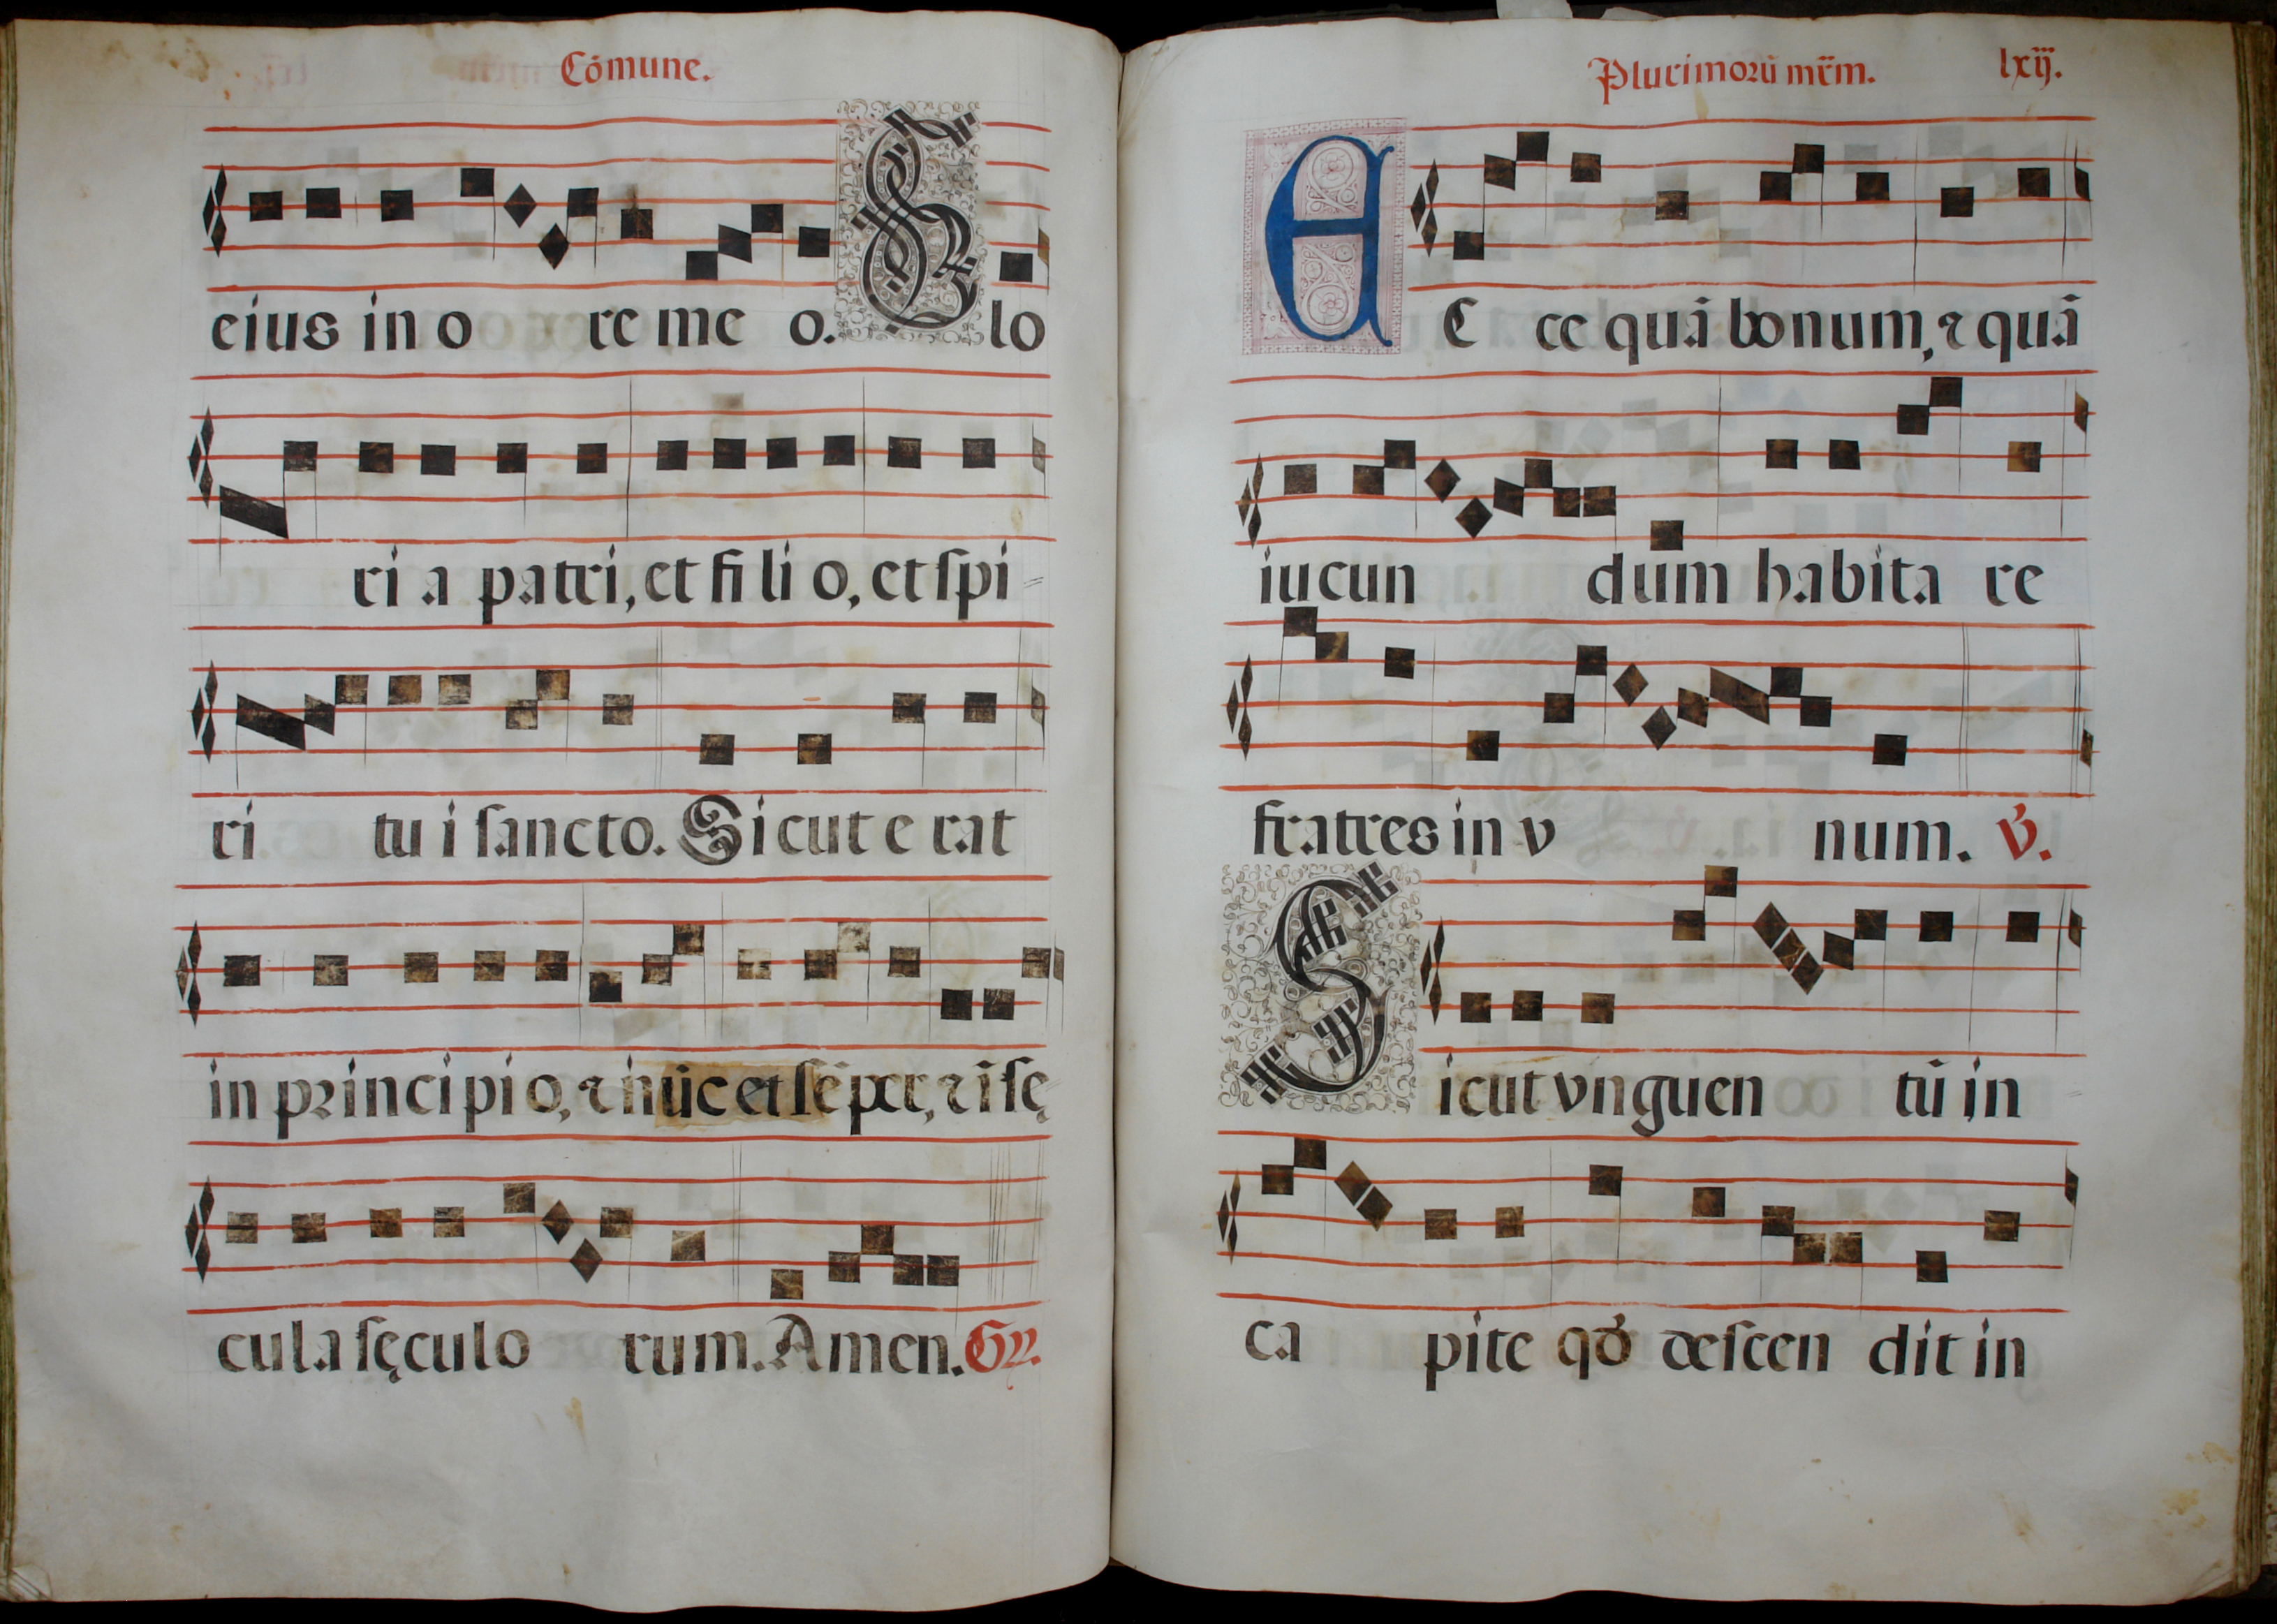 Cōmune.
eius in o re me o. Glo
ri a patri, et fi li o, et ſpi
ri tu i ſancto. Sicut e rat
in principi o, ⁊ nūc et ſēper, ⁊ ī ſę
cula ſęculo rum. Amen. Gr.
Plurimorū mr̄m. lxij.
EC ce quā bonum, ⁊ quā
iucun dum habita re
fratres in v num. v̓.
Sicut vnguen tū in
ca pite qđ deſcen dit in